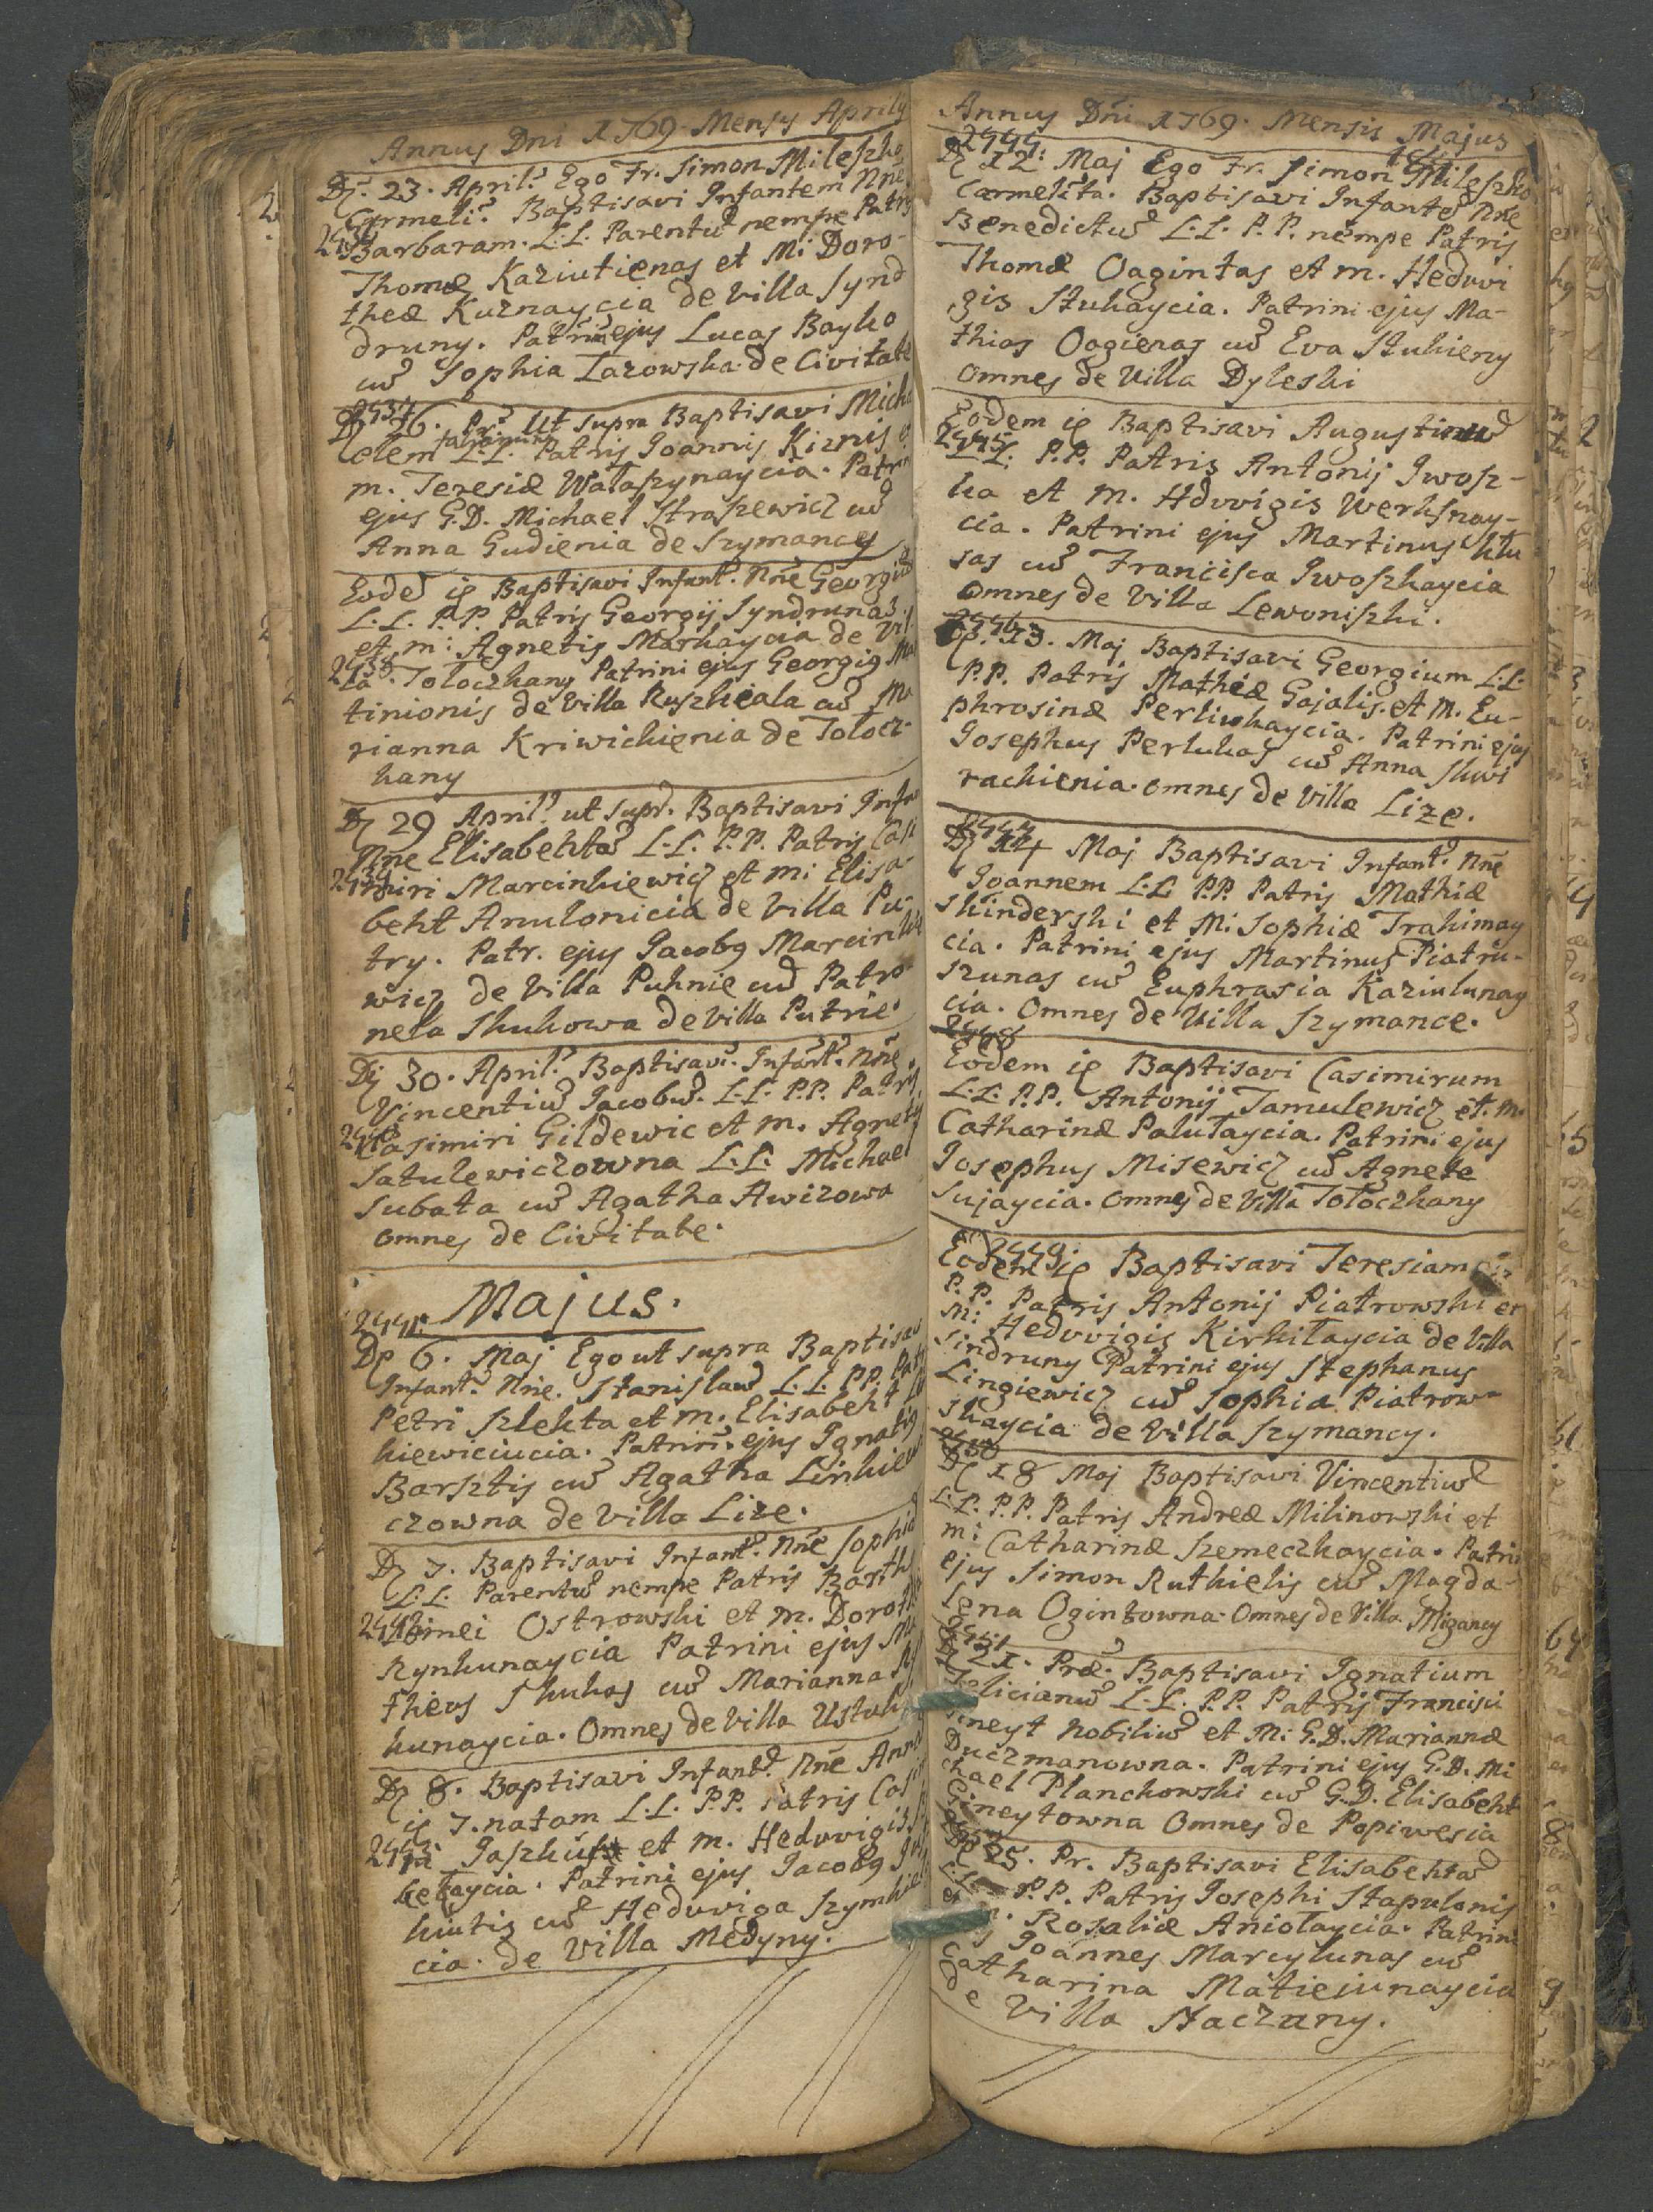 Annus Dni 1769. Mensys Aprilis
Dij. 23. April. Ego Fr. Simon Mileszko
Carmeli. Baptisavi Infantem Nne
Barbaram. L.L. Parentu nempe Patris
Thomæ Kaziutienas et Mi Doro-
theæ Kuznaycia de villa Synd
druny. Patrini ejus Lucas Bayko
cu Sophia Lazowska de Civitate
2437
D 26. Pr. Ut supra Baptisavi Micha
elem L.L. Patris Joannis Kiznis et
m. Teresiæ Wataszynaycia. Patrin
ejus G.D. Michael Straszewicz cu
Anna Gudienia de Szymancy
Eode ie Baptisavi Infant. Nne Georgiu
L.L. P.P. Patris Georgij Syndrunas.
et m: Agnetis Markaycia de Vil
2438
la Toloczkany Patrini ejus Georgig Mar
tinionis de villa Ruszkieala cu Ma
rianna Kriwickienia de Tolocz-
kany
D 29 April. ut supr. Baptisavi Infan
Nne Elisabehta L.L. P.P. Patris Casi
2439
miri Marcinkiewicz et mi: Elisa-
beht Anulonicia de villa Pu-
try. Patr. ejus Jacobg Marcinkie
wicz de villa Puknie cu Patro-
nela Skukowa de villa Putrie.
Dij 30. April. Baptisavi. Infant. Nne
Vincentiu Jacobu. L.L. P.P. Patris
2440
Casimiri Gildewic et m. Agnetis
Satulewiczowna L.L. Michael
Subata cu Agatha Awizowa
omnes de Civitate.
Majus.
2441.
D 6. Maj Ego ut supra Baptisavi
Infant. Nne. Stanislau L.L. P.P. Patr
Petri Szlekta et m. Elisabeht
kiewiciucia. Patrini ejus Ignatig
Barsztis cu Agatha Linkiew
czowna de villa Lize.
D 7. Baptisavi Infant. Nne Sophia
L.L. Parentu nempe Patris Barth
2442
lomei Ostrowski et m. Doroth
Rynkunaycia Patrini ejus Ma
theus Skukas cu Marianna Ry
kunaycia. Omnes de villa Ustuk
D 8. Baptisavi Infant. Nne Anna
ie 7. natam L.L. P.P. Patris Casi
2443
Jaszkus et m. Hedvvigis
betaycia. Patrini ejus Jacobg
kiutis cu Hedvviga Szymkie
cia. de villa Medyny.
Annus Dni 1769. Mensis Majus
2444.
D 12 Maj Ego Fr. Simon Mileszko
Carmelita. Baptisavi Infante Nne
Benedictu L.L. P.P. nempe Patris
Thomæ Oagintas et m. Heduvi
gis Stukaycia. Patrini ejus Ma-
thias Oagienas cu Eva Stukieny
omnes de villa Dyleski
Eodem ie Baptisavi Augustinu
2445
L.L. P.P. Patris Antonij Jwosz-
ka et m. Hdvvigis Werksnay-
cia. Patrini ejus Martinus Klu
sas cu Francisca Jwoszkaycia
omnes de villa Lewoniszki.
2446
D. 13. Maj Baptisavi Georgium L.L.
P.P. Patris Mathiæ Gajalis. et M. Eu-
phrosinæ Perliukaycia. Patrini ejus
Josephus Perlukas cu Anna Skwi
rackienia. omnes de villa Lize.
D 14 Maj Baptisavi Infant. Nne
Joannem L.L P.P. Patris Mathiæ
Skinderski et M. Sophiæ Trakimay
cia. Patrini ejus Martinus Piatru-
szunas cu Euphrasia Kaziulunay
cia. Omnes de villa Szymance.
2448
Eodem ie Baptisavi Casimirum
L.L. P.P. Antonij Tamulewicz et. m.
Catharinæ Palutaycia. Patrini ejus
Josephus Misewicz cu Agnete
Sujaycia. omnes de Villa Toloczkany
2449
Eodem ie Baptisavi Teresiam
P.P. Patris Antonij Piatrowski et
M: Hedvvigis Kirkitaycia de villa
Sindruny Patrini ejus Stephanus
Lingiewicz cu Sophia Piatrow-
skaycia de villa Szymancy.
2450
D 18 Maj Baptisavi Vincentiu
L.L. P.P. Patris Andreæ Milinowski et
m: Catharinæ Szemeczkaycia. Patrini
ejus Simon Rutkielis cu Magda-
lena Ogintowna. Omnes de Villa Mizancy
2451
D 21. Præ. Baptisavi Ignatium
Felicianu L.L. P.P. Patris Francisci
Gineyt nobiliu et M: G.D. Mariannæ
Duczmanowna. Patrini ejus G.D. Mi
chael Planchowski cu G.D. Elisabeht
Gineytowna Omnes de Popiwesia
D 25. Pr. Baptisavi Elisabehta
P.P. Patris Josephi Stapulonis
Rosaliæ Aniotaycia. Patrini
Joannes Marcylunas cu
Catharina Matieiunaycia
de villa Staczuny.